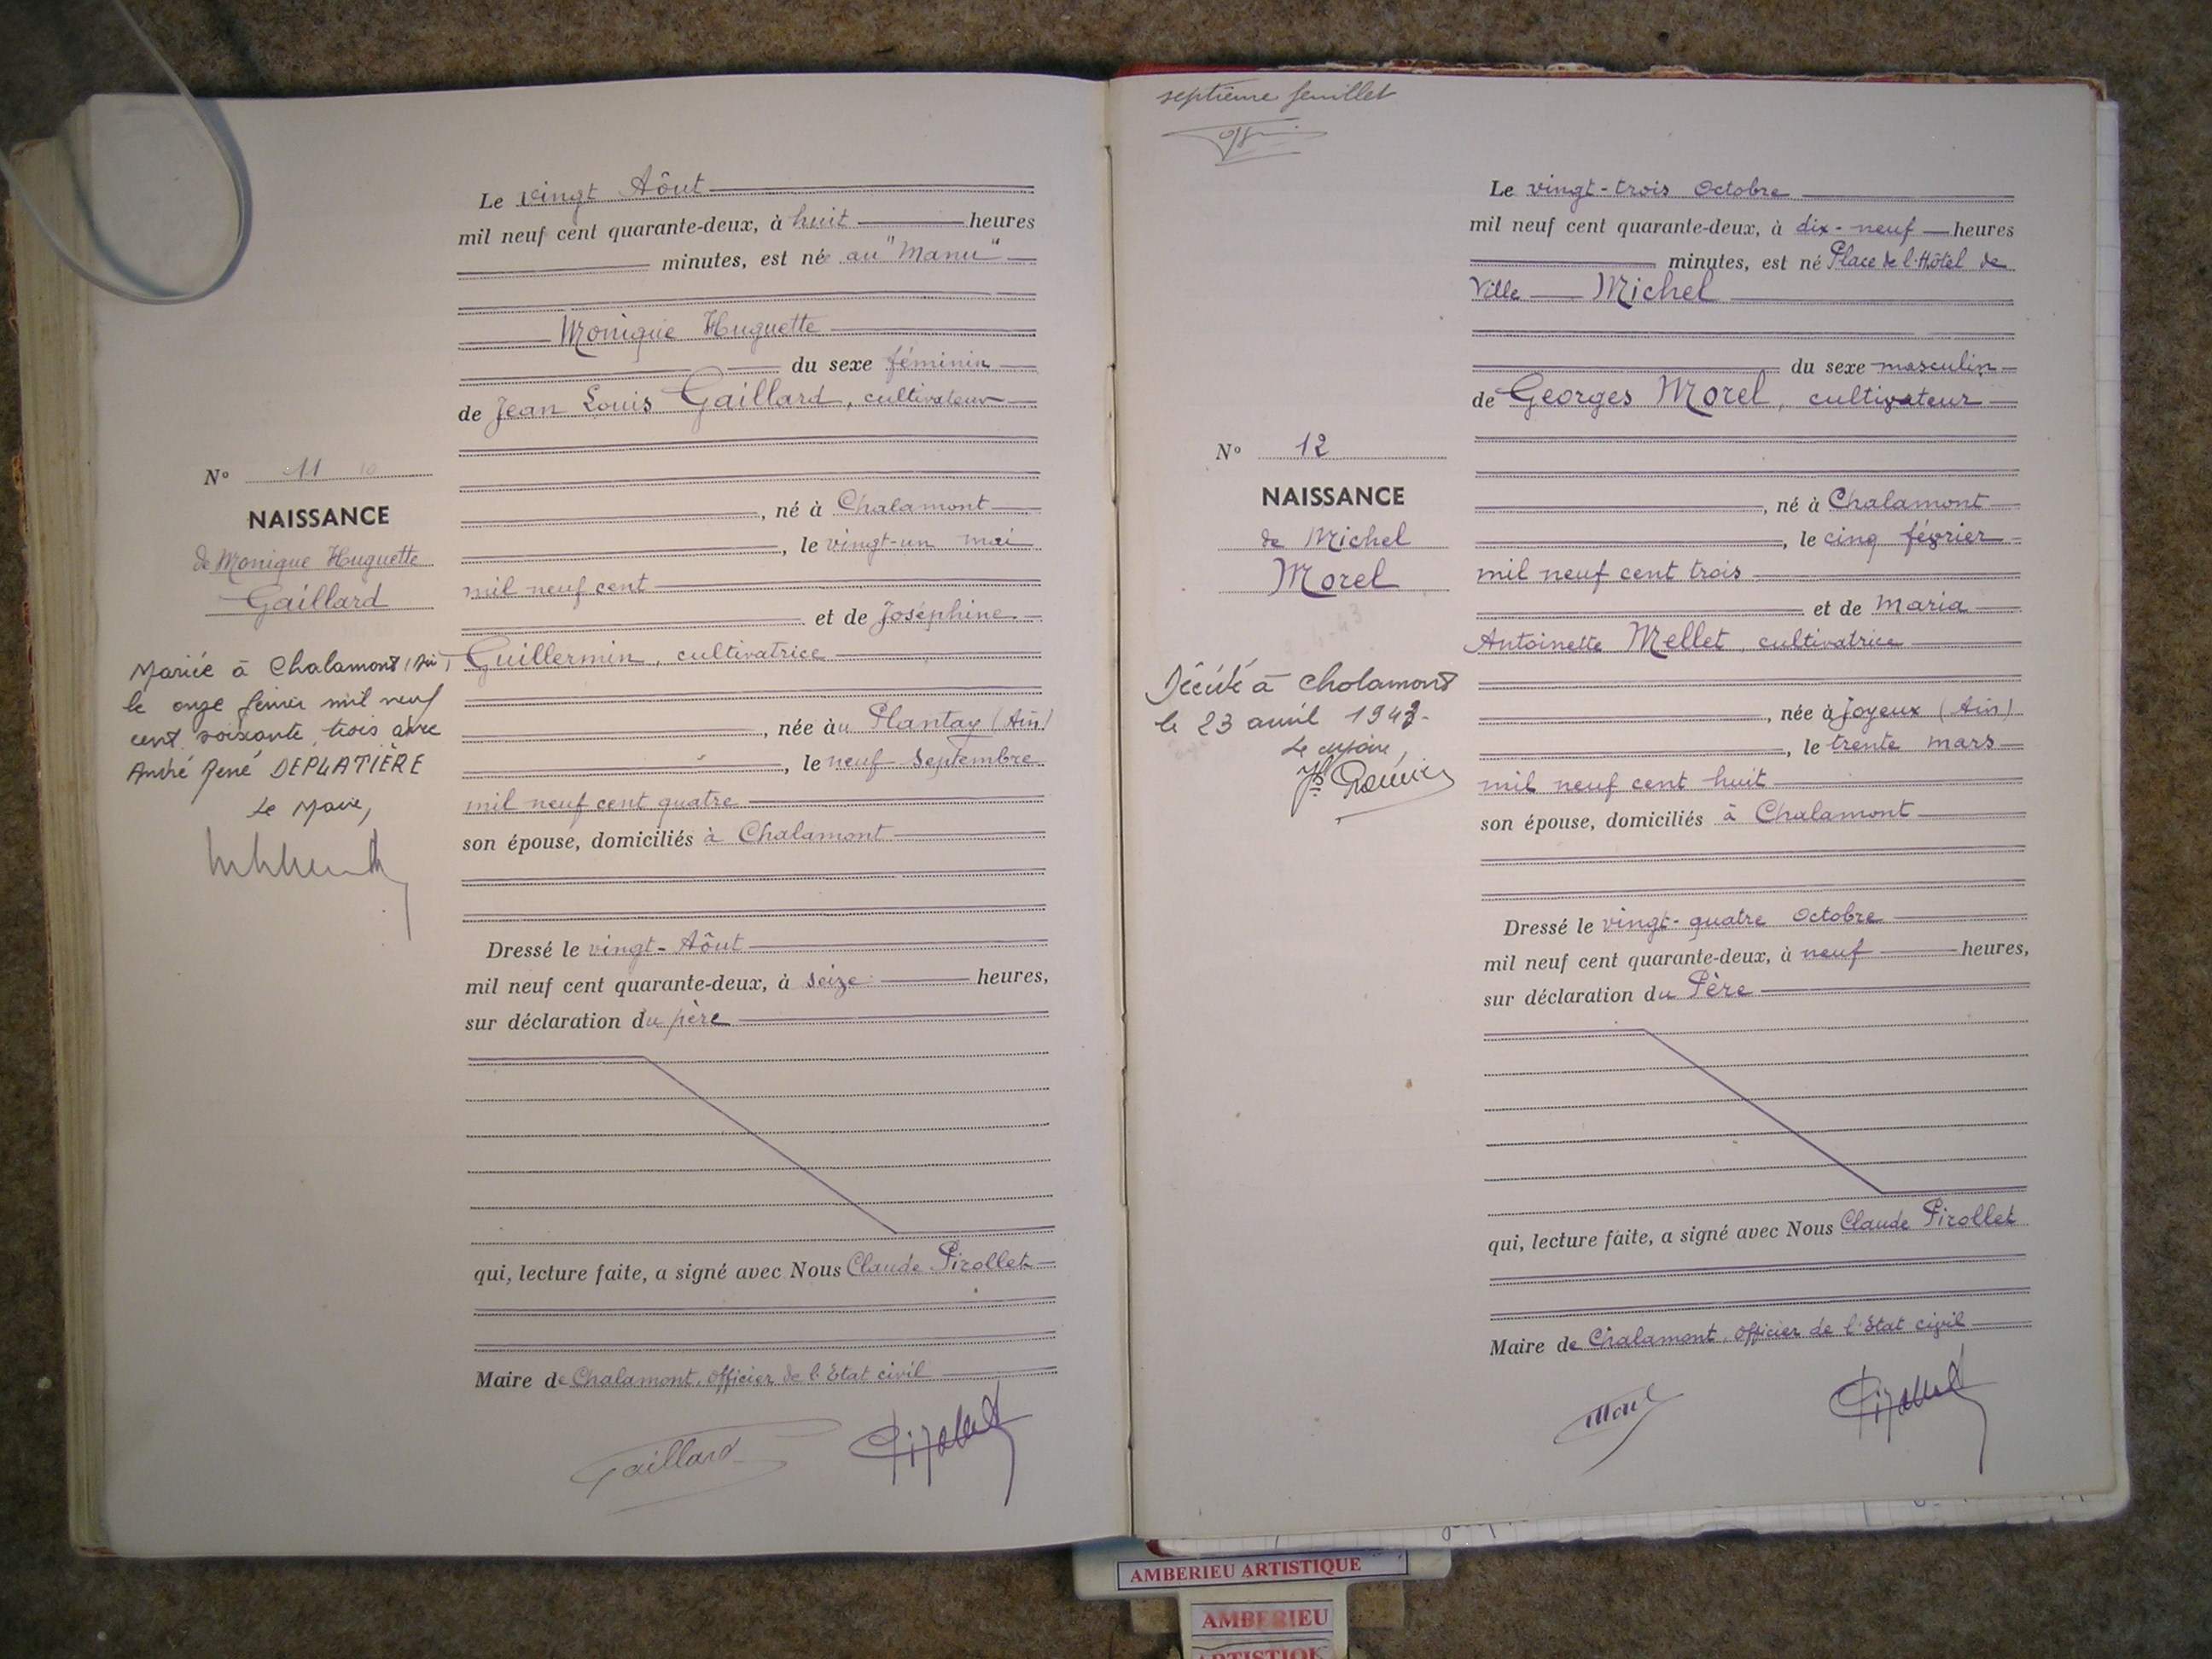 Le vingt Aôut
mil neuf cent quarante-deux, à huit heures
minutes, est née au "Manu"
Monique Huguette
du sexe féminin
de Jean Louis Gaillard, cultivateur
N° 11
NAISSANCE
de Monique Huguette
Gaillard
, né à Chalamont
, le vingt-un mai
mil neuf cent
et de Joséphine
Guillermin, cultivatrice
, née au Plantay (Ain)
, le neuf Septembre
mil neuf cent quatre
son épouse, domiciliés à Chalamont
Mariée à Chalamont (Ain)
le onze février mil neuf
cent soixante trois avec
André René DEPLATIÈRE
Le Maire,
Dressé le vingt-Aôut
mil neuf cent quarante-deux, à seize heures,
sur déclaration du père
qui, lecture faite, a signé avec Nous Claude Pirollet
Maire de Chalamont, Officier de l'Etat civil
Gaillard Pirollet
septième feuillet
Le vingt-trois Octobre
mil neuf cent quarante-deux, à dix-neuf heures
minutes, est né Place de l'Hôtel de
Ville Michel
du sexe masculin
de Georges Morel, cultivateur
N° 12
NAISSANCE
de Michel
Morel
, né à Chalamont
, le cinq février
mil neuf cent trois
et de Maria
Antoinette Mellet, cultivatrice
, née à Joyeux (Ain)
, le trente mars
mil neuf cent huit
son épouse, domiciliés à Chalamont
Décédé à Chalamont
le 23 avril 1943.
Le Maire,
Dressé le vingt-quatre Octobre
mil neuf cent quarante-deux, à neuf heures,
sur déclaration du Père
qui, lecture faite, a signé avec Nous Claude Pirollet
Maire de Chalamont, Officier de l'Etat civil
Morel Pirollet
AMBERIEU ARTISTIQUE
AMBERIEU
ARTISTIQUE